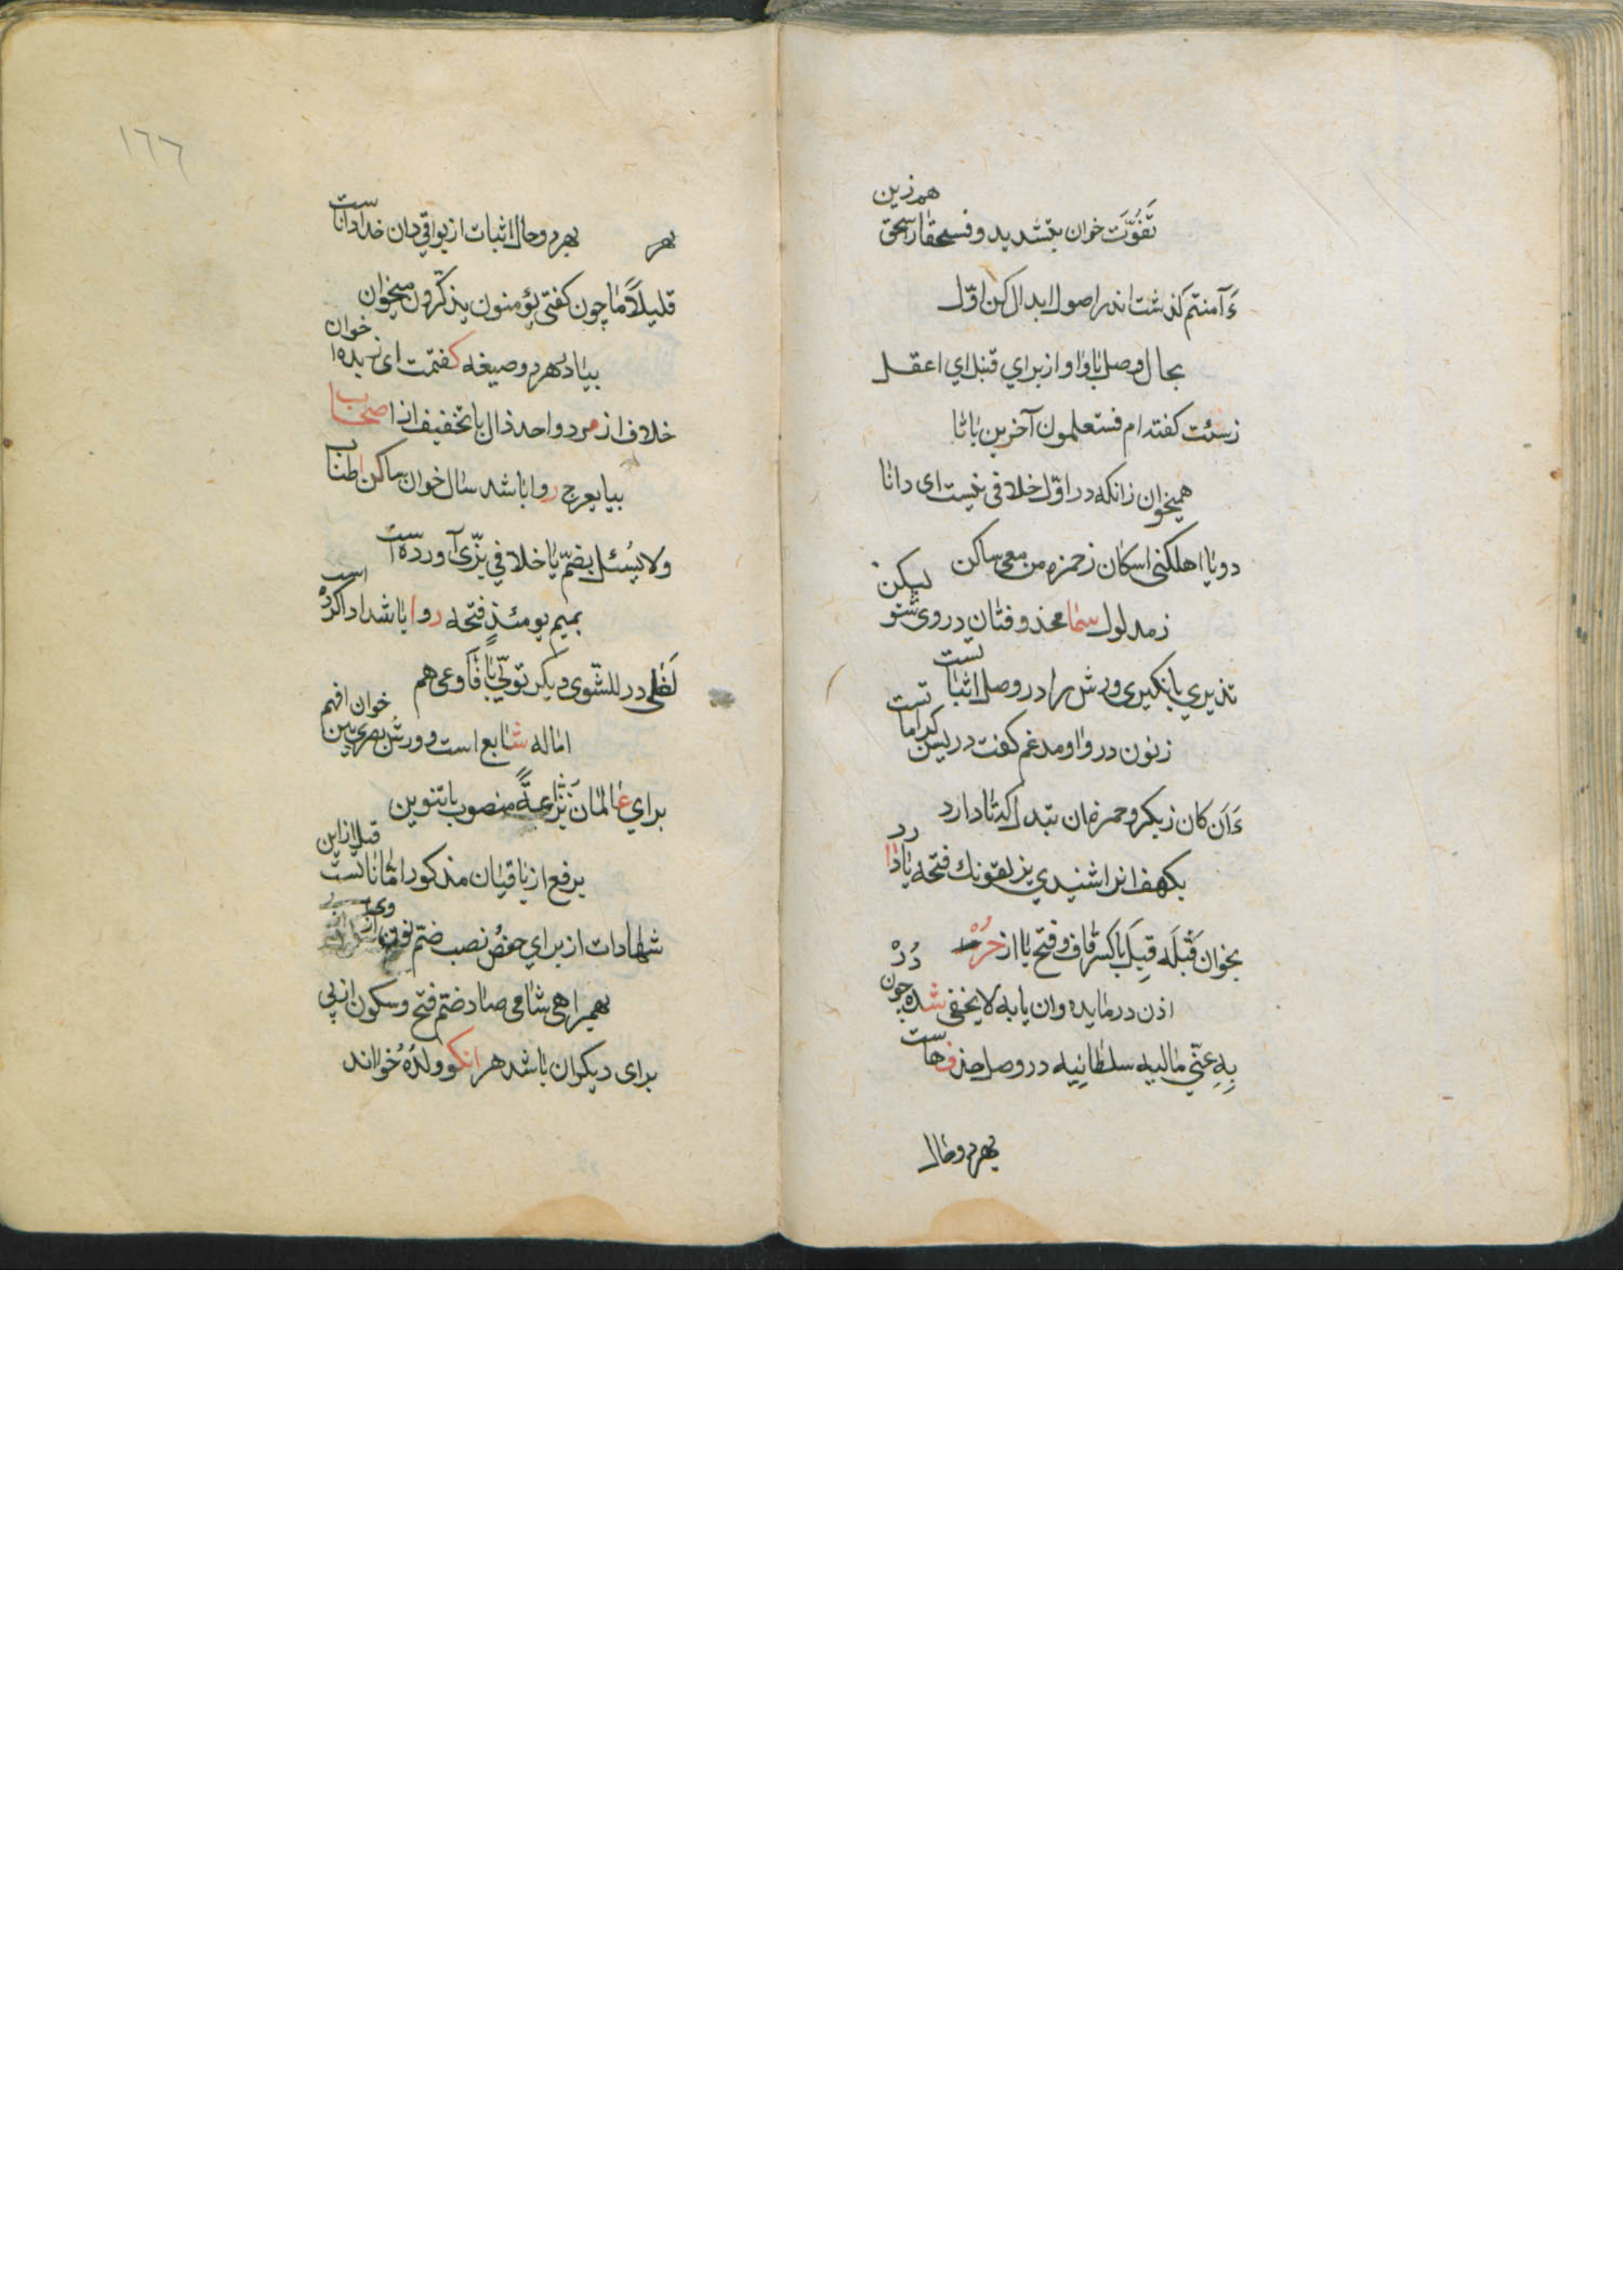 تَفَوُّتَ خوان بتشدید و فسحقا را سحق هم زین
ءَآمنتم گذشت اندر اصول ابدال کن اوّل
بحال وصل با واو از برای قنبل ای اعقل
زسیئت گفته‌ام فستعلمون آخرین با تا
همیخوان زانکه در اوّل خلافی نیست ای دانا
دو یا اهلکنی اسکان ز حمزه من معی ساکن
زمدلول سما محذوفتان در وی شنو لیکن
نذیری با نکیری ورش را در وصل اثباتست
زنون در واو مدغم گفت در یس کراماتست
ءَأَن کان زبکر و حمزه‌مان تبدل که تا دارد
بکهف انرا شنیدی یزلقونك فتحه یا دارد
بخوان قَبْلَه قِبَلَ با کسر قاف و فتح یا از حُرْ دُرْ
اذن در مایده وان یا به لا یخفی شده چون
بِهِ عنّی مالیه سلطانیه در وصل حذف هاست
بهر دو حال
۱۶۶
بهر
بهر دو حال اثبات از بواقی دان خدا داناست
قلیلاً ما چون گفتی یؤمنون یذکّرون میخوان
بیا در هر دو صیغه گفتمت ای زبده خوان
خلاف از مرد واحد ذال با تخفیف از اصحاب
بیا یعرج روا باشد سال خوان ساکن اطناب
ولا یُسئل بضمّ یا خلافی بزّی آورده است
بمیم یومئذٍ فتحه روا باشد ادا کرده است
لَظٰی در للشّوی دیگر تولّی با فَاَوعی هم
اماله شایع است و ورش بصری بین خوان افهم
برای عالمان نزّاعةً منصوب با تنوین
برفع از باقیان مذکور اماناتست قبل از این
شهادات از برای حفص نصب ضمّ نون از وی
بهمراهی شامی صاد ضمّ فتح و سکون از پی
برای دیگران باشد هر انکو ولدُهُ خواند